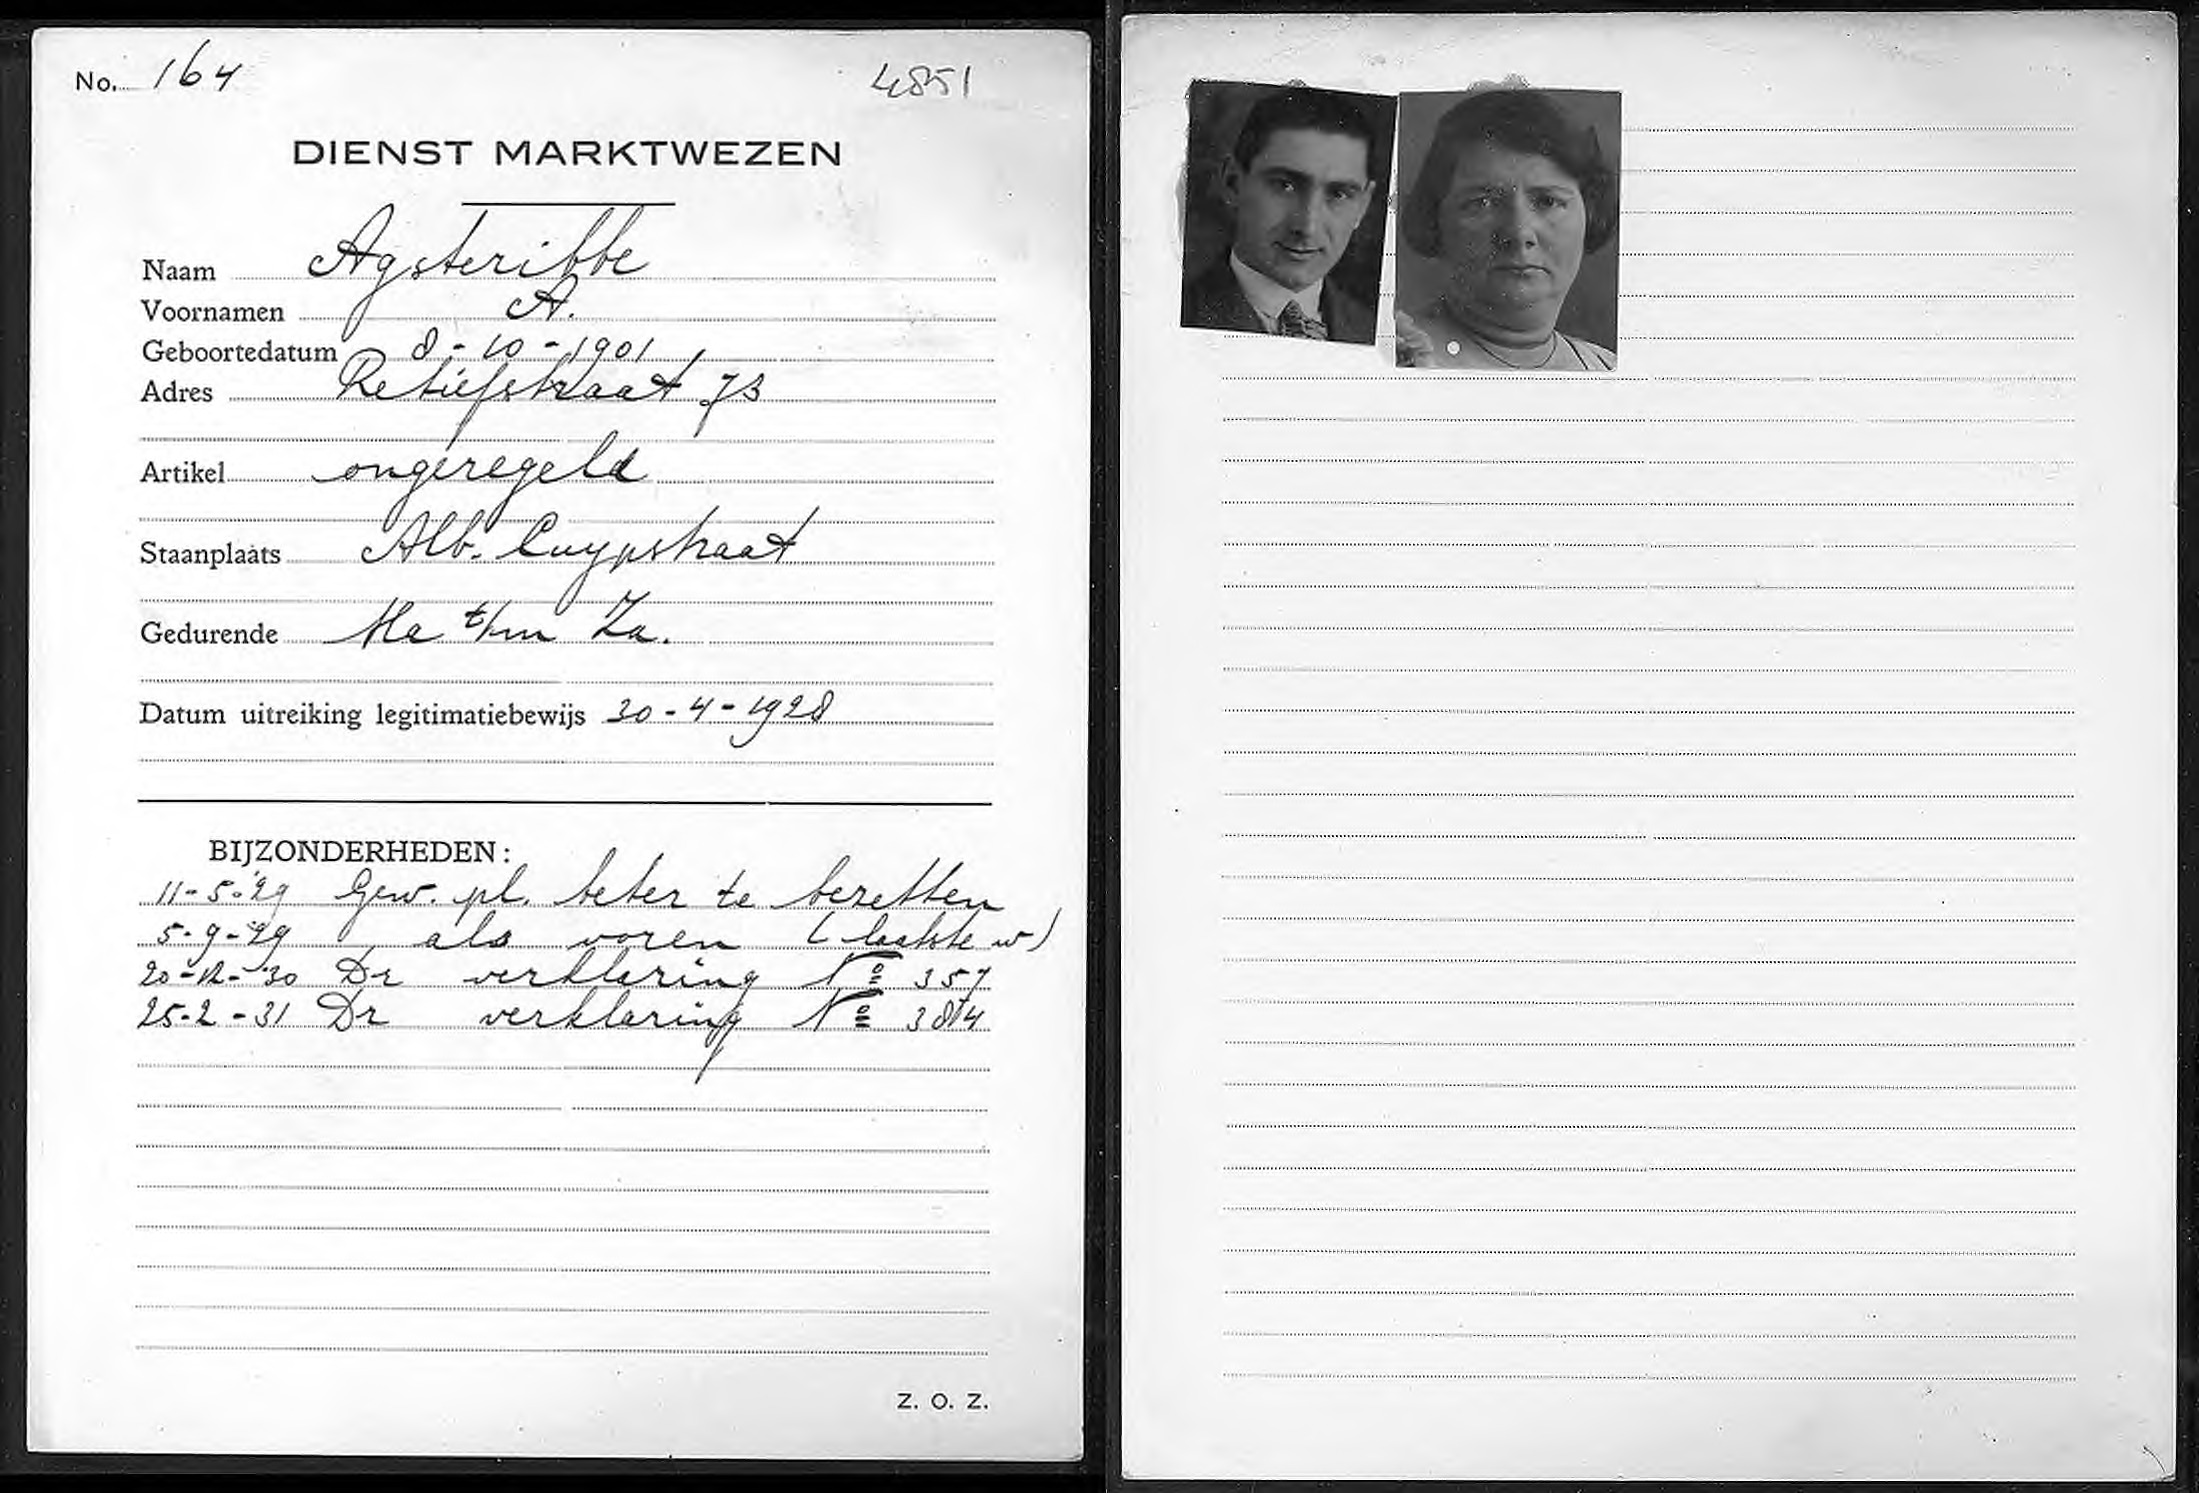 No. 164
4851
DIENST MARKTWEZEN
Naam Agsteribbe
Voornamen A.
Geboortedatum 8-10-1901
Adres Retiefstraat 73
Artikel ongeregeld
Staanplaats Alb. Cuypstraat
Gedurende Ma t/m Za.
Datum uitreiking legitimatiebewijs 30-4-1928
BIJZONDERHEDEN:
11-5-'29 Gew. pl. beter te bezetten
5-9-'29 als voren (laatste w)
20-12-'30 Dr verklaring No 357
25-2-31 Dr verklaring No 3814
Z. O. Z.